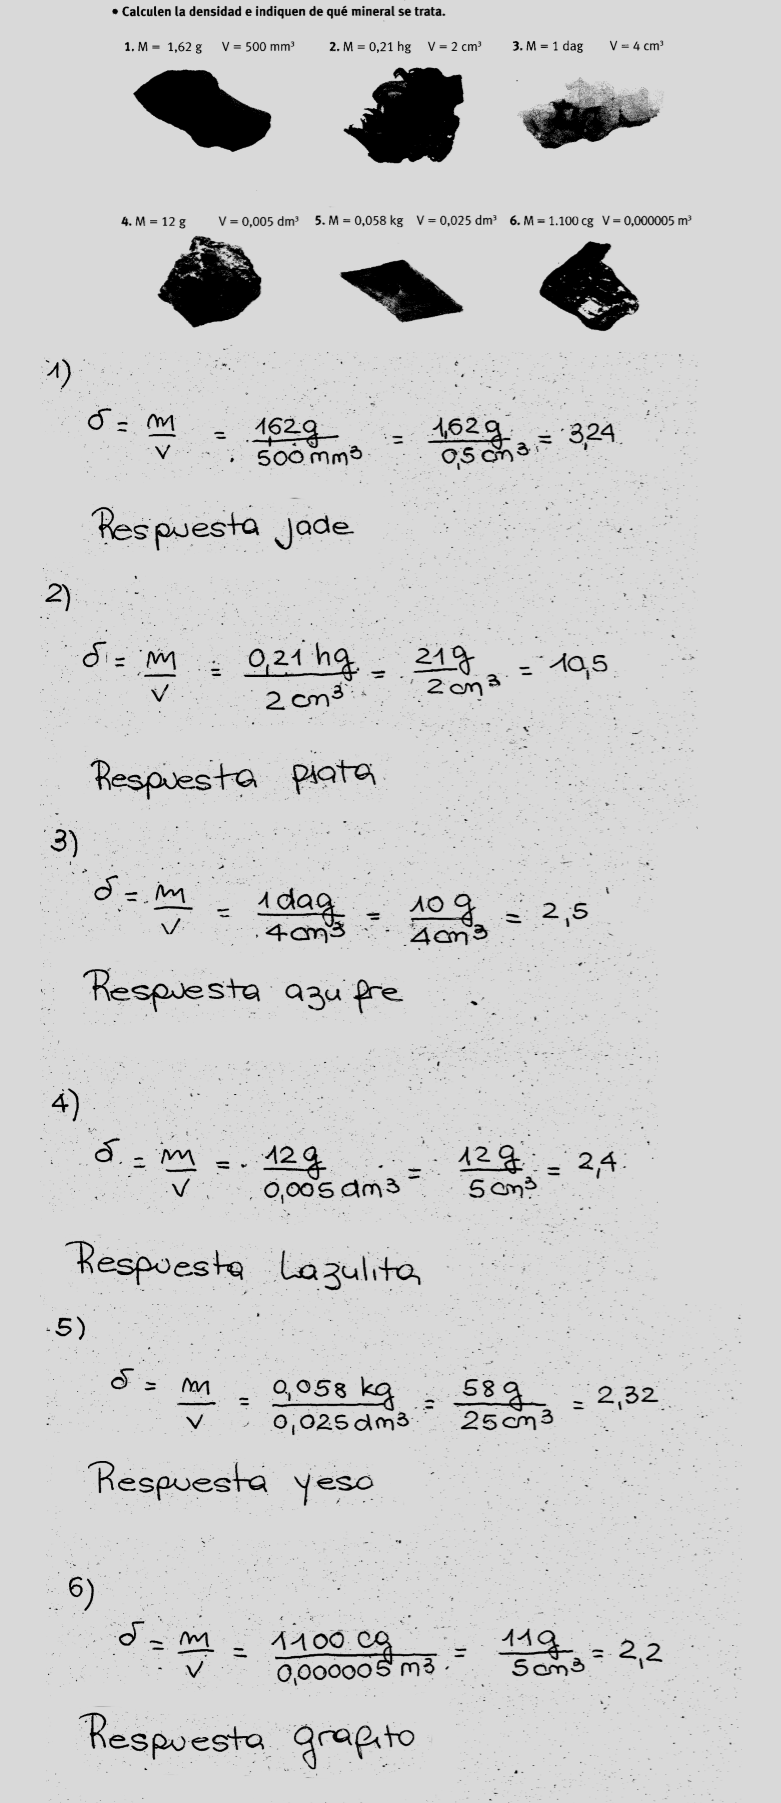 • Calculen la densidad e indiquen de qué mineral se trata.
1. M = 1,62 g V = 500 mm³ 2. M = 0,21 hg V = 2 cm³ 3. M = 1 dag V = 4 cm³
4. M = 12 g V = 0,005 dm³ 5. M = 0,058 kg V = 0,025 dm³ 6. M = 1.100 cg V = 0,000005 m³
1)
δ = m/v = 1,62g/500mm³ = 1,62g/0,5cm³ = 3,24
Respuesta jade
2)
δ = m/v = 0,21 hg/2cm³ = 21g/2cm³ = 10,5
Respuesta plata
3)
δ = m/v = 1dag/4cm³ = 10g/4cm³ = 2,5
Respuesta azufre
4)
δ = m/v = 12g/0,005dm³ = 12g/5cm³ = 2,4
Respuesta Lazulita
5)
δ = m/v = 0,058 kg/0,025dm³ = 58g/25cm³ = 2,32
Respuesta yeso
6)
δ = m/v = 1100 cg/0,000005m³ = 11g/5cm³ = 2,2
Respuesta grafito